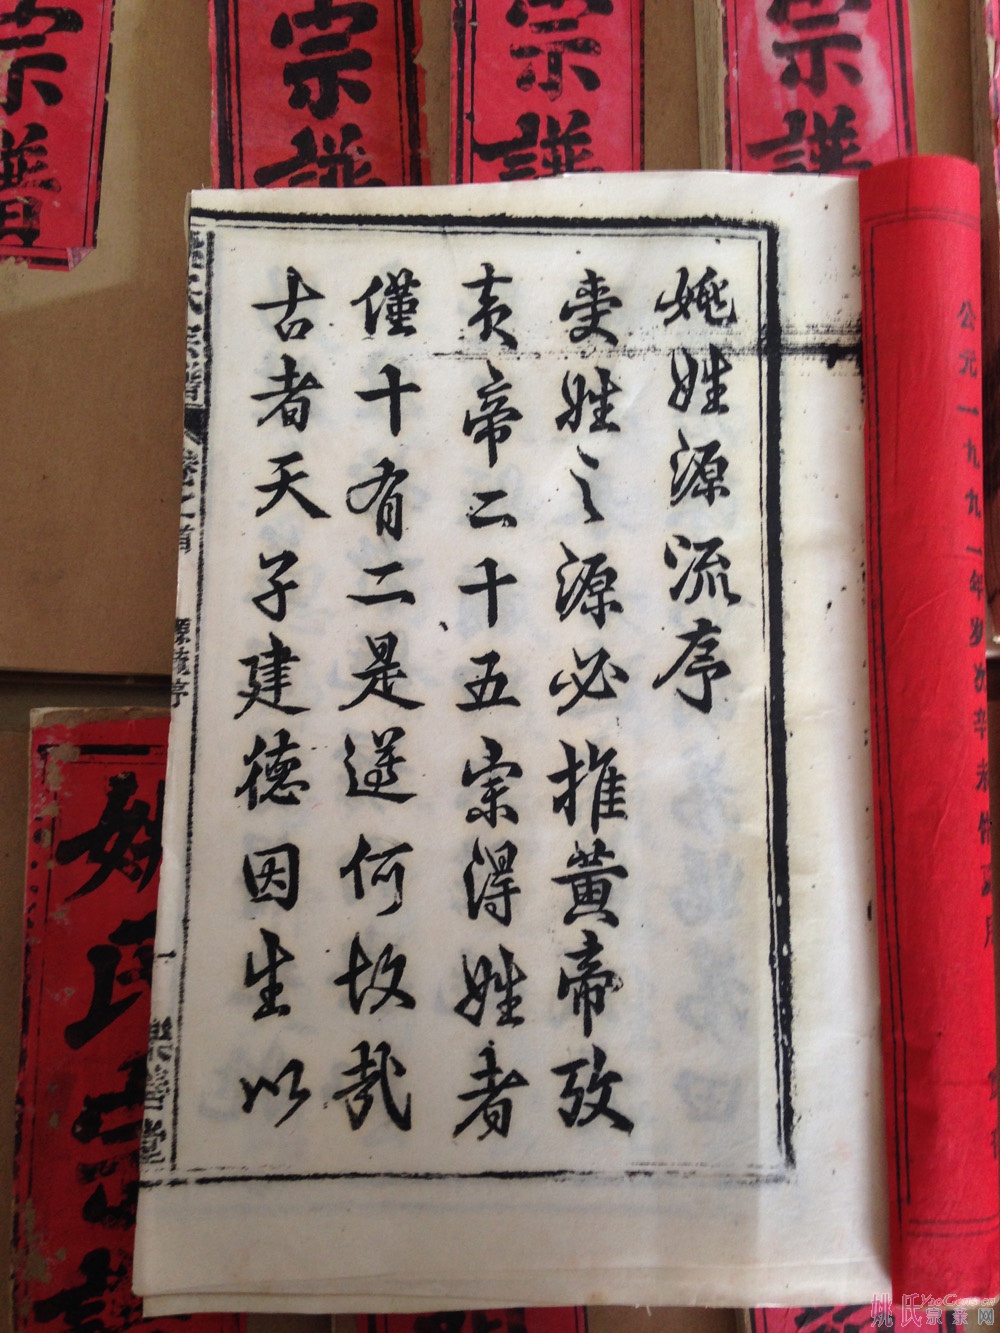 姚姓源流序
受姓之源必推黃帝攷
黃帝二十五宗得姓者
僅十有二是遵何故哉
古者天子建德因生以
氏宗譜
卷之首
源流序
一
樂善堂
公元一九九一年岁次辛未
宗譜
宗譜
宗譜
宗譜
姚氏宗譜
姚氏宗亲网